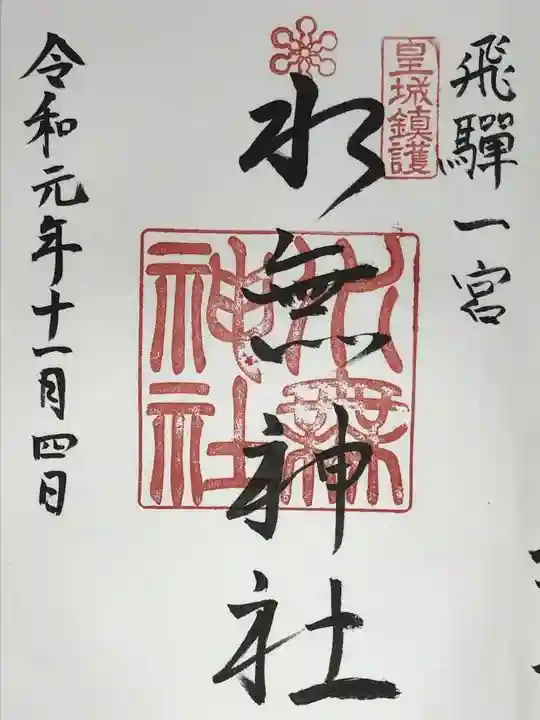 飛騨一宮
皇城鎮護
水無神社
水無神社
令和元年十一月四日